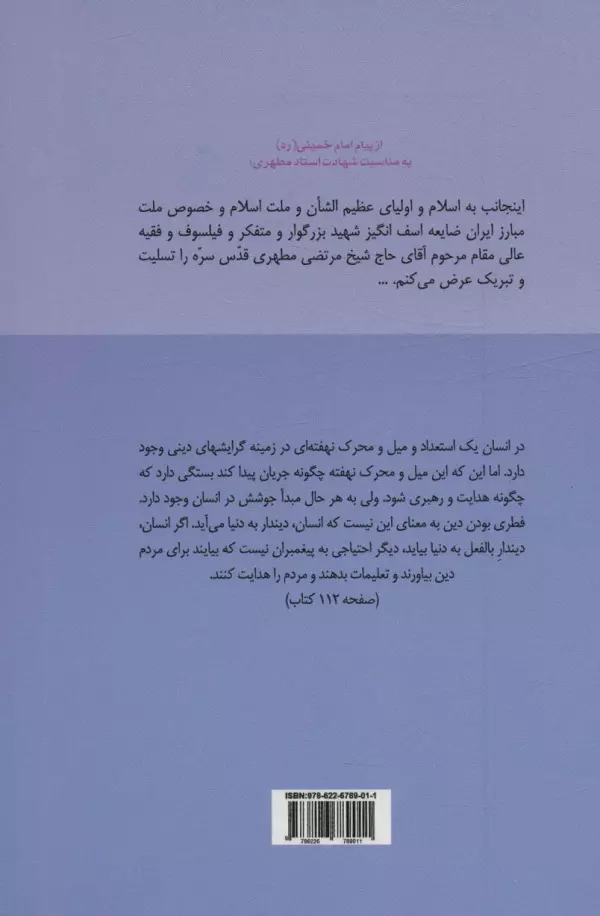 از پیام امام خمینی(ره)
به مناسبت شهادت استاد مطهری:
اینجانب به اسلام و اولیای عظیم الشأن و ملت اسلام و خصوص ملت
مبارز ایران ضایعه اسف انگیز شهید بزرگوار و متفکر و فیلسوف و فقیه
عالی مقام مرحوم آقای حاج شیخ مرتضی مطهری قدّس سرّه را تسلیت
و تبریک عرض می‌کنم. ...
در انسان یک استعداد و میل و محرک نهفته‌ای در زمینه گرایشهای دینی وجود
دارد. اما این که این میل و محرک نهفته چگونه جریان پیدا کند بستگی دارد که
چگونه هدایت و رهبری شود. ولی به هر حال مبدأ جوشش در انسان وجود دارد.
فطری بودن دین به معنای این نیست که انسان، دیندار به دنیا می‌آید. اگر انسان،
دیندارِ بالفعل به دنیا بیاید، دیگر احتیاجی به پیغمبران نیست که بیایند برای مردم
دین بیاورند و تعلیمات بدهند و مردم را هدایت کنند.
(صفحه ۱۱۲ کتاب)
ISBN:978-622-6789-01-1
9 786226 789011